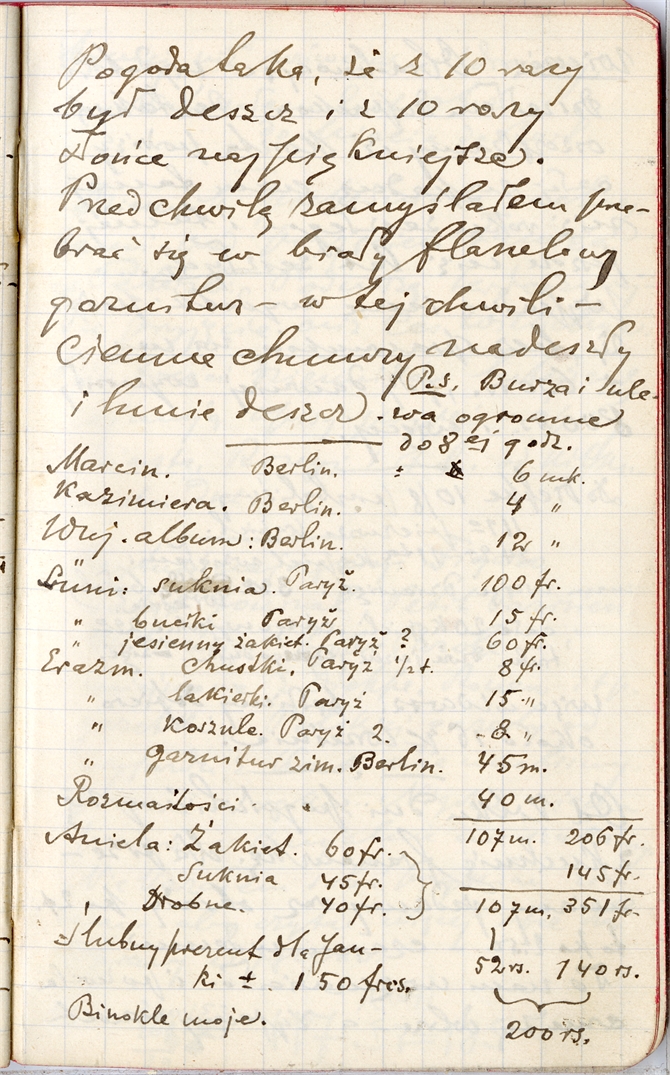 Pogoda taka, że z 10 razy
był deszcz i z 10 razy
słońce najpiękniejsze.
Przed chwilą zamyślałem prze-
brać się w biały flanelowy
garnitur – w tej chwili –
ciemne chmury nadeszły
i lunie deszcz.
P.s. Burza i ule-
wa ogromne
do 8ej godz.
Marcin. Berlin. 6 mk.
Kazimiera. Berlin. 4 "
Wuj. album: Berlin. 12 "
Luni: suknia. Paryż. 100 fr.
" buciki Paryż 15 fr.
" jesienny żakiet. Paryż ? 60 fr.
Erazm. chustki. Paryż 1/2 t. 8 fr.
" lakierki. Paryż 15 "
" koszule. Paryż 2. 8 "
" garnitur zim. Berlin. 45 m.
Rozmaitości. 40 m.
107 m. 206 fr.
Aniela: Żakiet. 60 fr.
Suknia 45 fr.
Drobne. 40 fr.
145 fr.
107 m. 351 fr.
Ślubny prezent dla Jan-
ki ± 150 frcs.
52 rs. 140 rs.
Binokle moje.
200 rs.